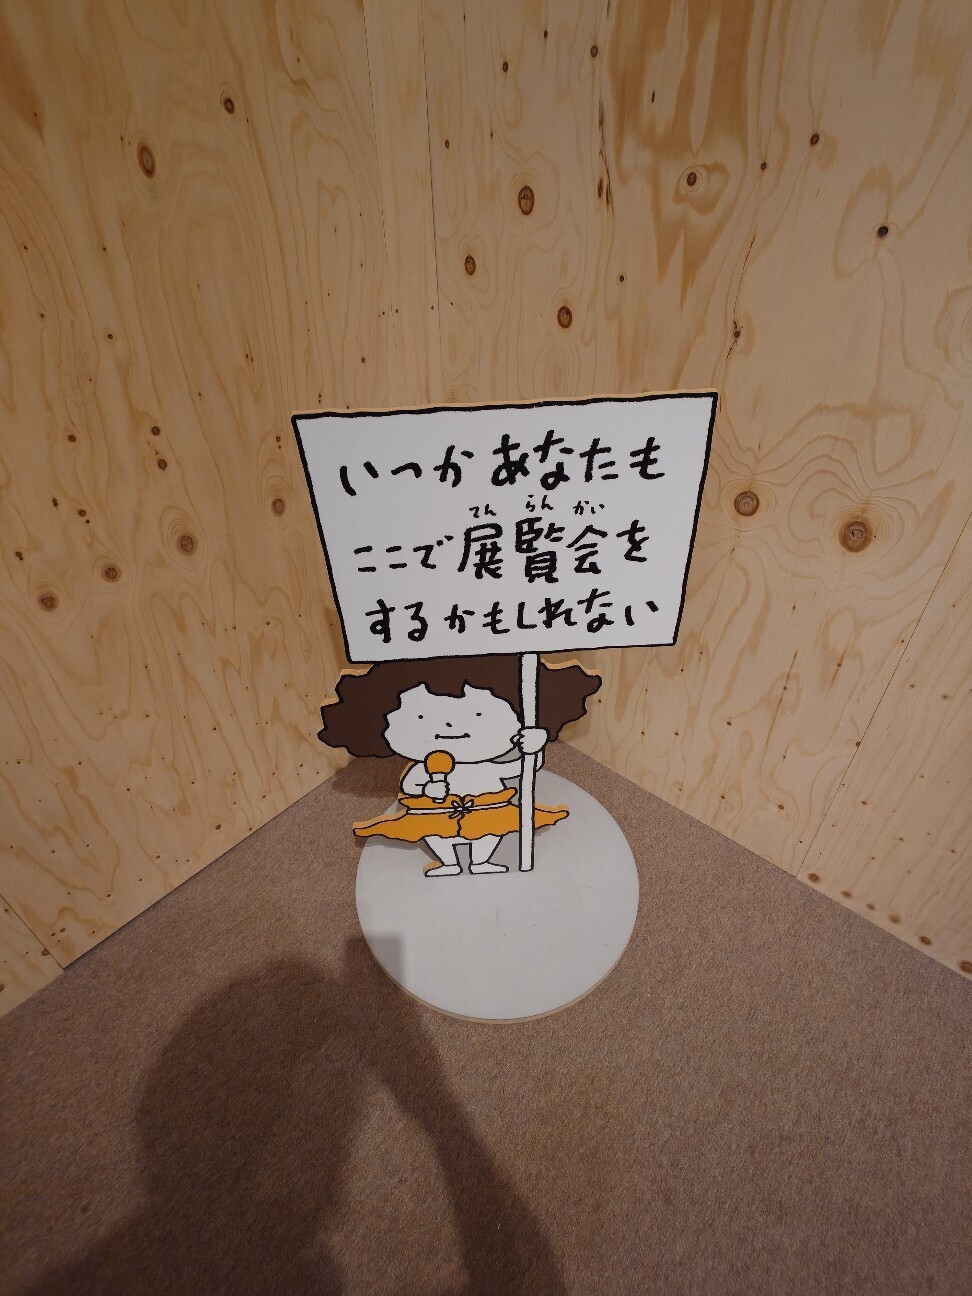 いつか あなたも
てん らん かい
ここで展覧会を
するかもしれない